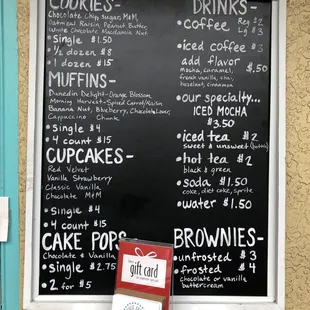 COOKIES-
Chocolate Chip, Sugar, M&M,
Oatmeal Raisin, Peanut Butter,
White Chocolate Macadamia Nut
• Single $1.50
• ½ dozen $8
• 1 dozen $15
MUFFINS-
Dunedin Delight-Orange Blossom
Morning Harvest-Spiced Carrot/Raisin
Banana Nut, Blueberry, Chocolate Lover,
Cappuccino Chunk
• Single $4
• 4 count $15
CUPCAKES-
Red Velvet
Vanilla Strawberry
Classic Vanilla
Chocolate M&M
• Single $4
• 4 count $15
CAKE POPS-
Chocolate & Vanilla
• single $2.75
• 2 for $5
DRINKS-
• coffee Reg $2
Lg $3
• iced coffee $3
add flavor $.50
Mocha, caramel,
french vanilla, chai,
hazelnut, cinnamon
• our specialty...
ICED MOCHA
$3.50
• iced tea $2
sweet & unsweet
• hot tea $2
black & green
• soda $1.50
coke, diet coke, sprite
• water $1.50
BROWNIES-
• unfrosted $3
• frosted $4
chocolate or vanilla
buttercream
gift card